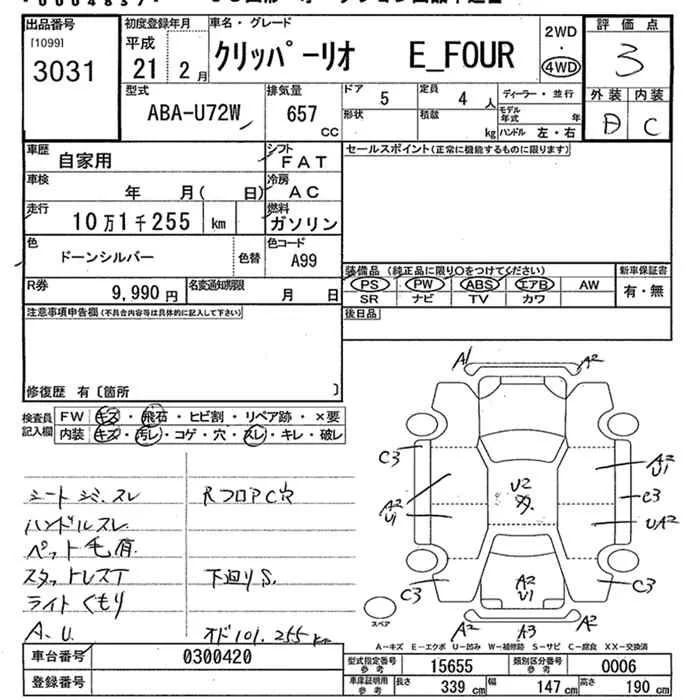 出品番号
[1099]
3031
初度登録年月
平成
21 2月
車名・グレード
クリッパーリオ E_FOUR
2WD
・
4WD
評価点
3
外装 内装
D C
型式
ABA-U72W
排気量
657 CC
ドア 5
定員 4人
ディーラー・並行
形状
積載 kg
モデル年式 年
ハンドル 左・右
車歴
自家用
シフト
FAT
車検
年 月( 日)
冷房
AC
走行
10万1千255 km
燃料
ガソリン
色
ドーンシルバー
色替
色コード
A99
R券
9,990円
名変通知期限
月 日
セールスポイント(正常に機能するものに限ります)
装備品 (純正品に限り○をつけてください)
PS PW ABS エアB AW
SR ナビ TV カワ
新車保証書
有・無
後日品
注意事項申告欄(不具合内容等は具体的に記入して下さい)
修復歴 有〔箇所 〕
検査員記入欄
FW キズ・飛石・ヒビ割・リペア跡・×要
内装 キズ・汚レ・コゲ・穴・スレ・キレ・破レ
シートシミ、スレ
ハンドルスレ
ペット毛有
スタットレスT
ライトくもり
A.U.
RフロアC穴
下廻りS.
オド101.255km
A1
A2
C3
A2
U1
U2
A2
U1
C3
UA2
C3
A2
U1
C3
A2
A3
A2
スペア
A-キズ E-エクボ U-凹み W-補修跡 S-サビ C-腐食 XX-交換済
車台番号 0300420
登録番号
型式指定番号 参考 15655
類別区分番号 参考 0006
車庫証明用 参考 長さ 339cm 幅 147cm 高さ 190cm